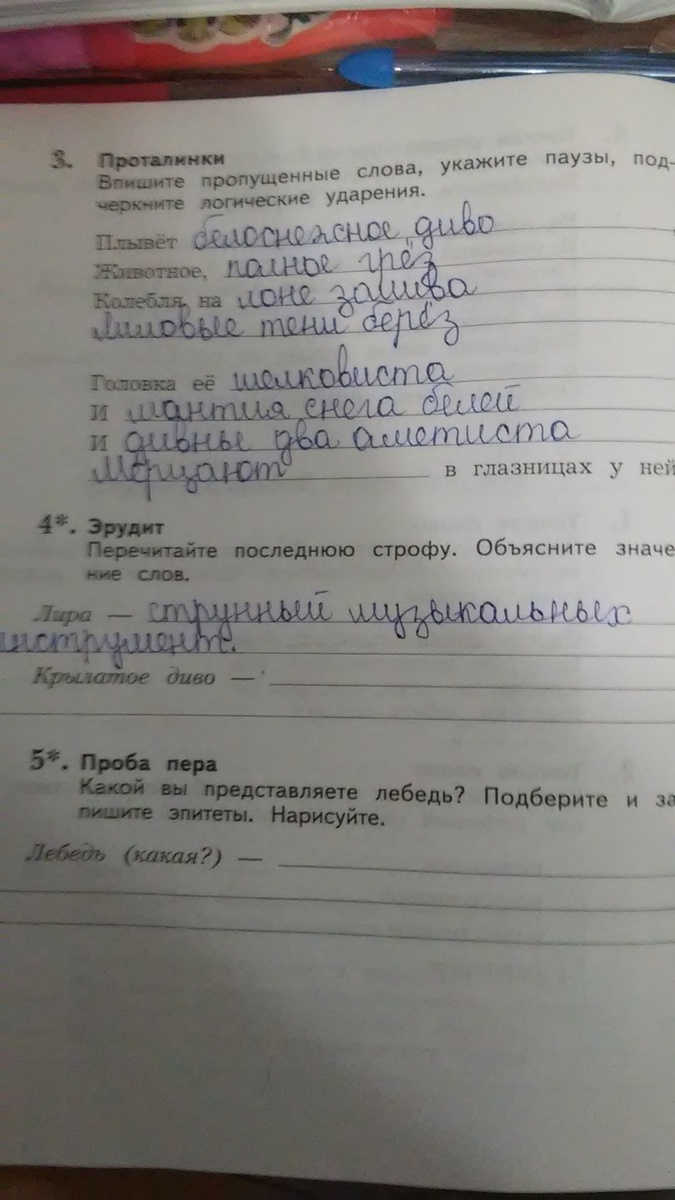 3. Проталинки
Впишите пропущенные слова, укажите паузы, под-
черкните логические ударения.
Плывёт белоснежное диво
Животное, полное грёз
Колебля на лоне залива
Лиловые тени берёз
Головка её шелковиста
И мантия снега белей
И дивны два аметиста
Мерцают в глазницах у ней
4*. Эрудит
Перечитайте последнюю строфу. Объясните значе
ние слов.
Лира — струнный музыкальных
инструмент.
Крылатое диво —
5*. Проба пера
Какой вы представляете лебедь? Подберите и за
пишите эпитеты. Нарисуйте.
Лебедь (какая?) —